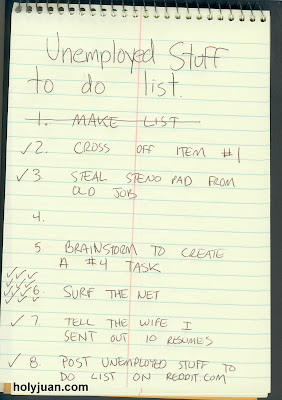 Unemployed Stuff
to do list.
1. MAKE LIST
✓2. CROSS OFF ITEM #1
✓3 STEAL STENO PAD FROM
OLD JOB
4.
5 BRAINSTORM TO CREATE
A #4 TASK
6. SURF THE NET
✓7. TELL THE WIFE I
SENT OUT 10 RESUMES
✓8. POST UNEMPLOYED STUFF TO
DO LIST ON REDDIT.COM
holyjuan.com